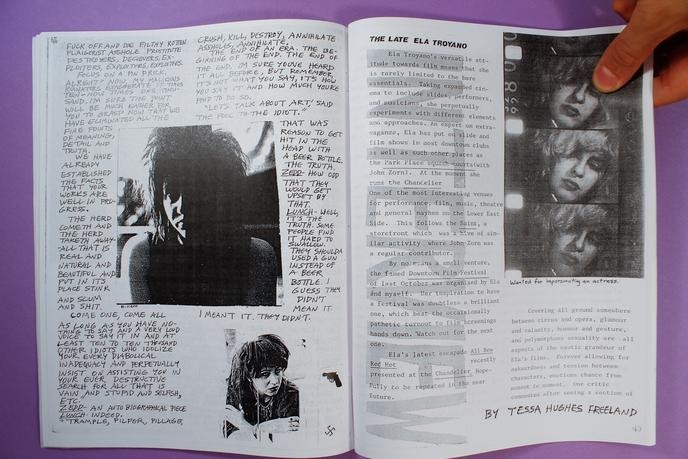 FUCK OFF AND DIE FILTHY ROTTEN
PLAIGORIST ASSHOLE PROSTITUTE
DESTROYERS, DECIEVERS, EX-
PLOITERS, EXPLOITERS, EXPLOITERS.
FOCUS ON A PIN PRICK.
ALRIGHT? NOW, MY MALICIOUS
TEN-NOW TIMES ONE THOU-
SAND. I'M SURE THE
WILL BE MUCH EASIER FOR
YOU TO GRASP NOW THAT WE
HAVE ELIMINATED ALL THE
FINE POINTS
OF MEANING,
DETAIL AND
TRUTH.
WE HAVE
ALREADY
ESTABLISHED
THE FACTS
THAT YOUR
WORKS ARE
WELL IN PRO-
GRESS.
THE HERD
COMETH AND
THE HERD
TAKETH AWAY
ALL THAT IS
REAL AND
NATURAL AND
BEAUTIFUL AND
PUT IN ITS
PLACE STINK
AND SCUM
AND SHIT.
COME ONE, COME ALL
AS LONG AS YOU HAVE NO-
THING TO SAY AND A VERY LOUD
VOICE TO SAY IT IN AND AT
LEAST TEN TO TEN THOUSAND
OTHER IDIOTS WHO IDOLIZE
YOUR EVERY DIABOLICAL
INADEQUACY AND PERPETUALLY
INSIST ON ASSISTING YOU IN
YOUR EVER DESTRUCTIVE
SEARCH FOR ALL THAT IS
VAIN AND STUPID AND SELFISH,
ETC.
ZEDD- AN AUTOBIOGRAPHICAL PIECE
LUNCH- INDEED.
"TRAMPLE, PILFER, PILLAGE,
CRUSH, KILL, DESTROY, ANNIHILATE
ASSHOLES, ANNIHILATE.
THE END OF AN ERA. THE BE-
GINNING OF THE END. THE END OF
THE END. I'M SURE YOU'VE HEARD
IT ALL BEFORE, BUT REMEMBER,
IT'S NOT WHAT YOU SAY, IT'S HOW
YOU SAY IT AND HOW MUCH YOU'RE
PAID TO DO SO.
"LET'S TALK ABOUT ART," SAID
THE FOOL TO THE IDIOT."
THAT WAS
REASON TO GET
HIT IN THE
HEAD WITH
A BEER BOTTLE.
THE TRUTH.
ZEDD- HOW ODD
THAT THEY
WOULD GET
UPSET BY
THAT.
LUNCH- WELL,
IT'S THE
TRUTH. SOME
PEOPLE FIND
IT HARD TO
SWALLOW.
THEY SHOULDA
USED A GUN
INSTEAD OF
A BEER
BOTTLE. I
GUESS THEY
DIDN'T
MEAN IT.
I MEANT IT. THEY DIDN'T.
THE LATE ELA TROYANO
Ela Troyano's versatile att-
itude towards film means that she
is rarely limited to the bare
essentials. Taking expanded cin-
ema to include slides, performers,
and musicians, she perpetually
experiments with different elements
and approaches. An expert on extra-
vaganza, Ela has put on slide and
film shows in most downtown clubs
as well as such other places as
the Park Place squash courts(with
John Zorn). At the moment she
runs the Chandelier
One of the most interesting venues
for performance, film, music, theatre
and general mayhem on the Lower East
Side. This follows the Saint, a
storefront which was a hive of sim-
ilar activity where John Zorn was
a regular contributor.
By no means a small venture,
the famed Downtown Film Festival
of last October was organised by Ela
and myself. Her inspiration to have
a festival was doubtless a brilliant
one, which beat the occasionally
pathetic turnout to film screenings
hands down. Watch out for the next
one.
Ela's latest escapade All Bow
Red Hot recently
presented at the Chandelier. Hope-
fully to be repeated in the near
future.
Wanted for impersonating an actress.
Covering all ground somewhere
between circus and opera, glamour
and calamity, humour and gesture,
and polymorphous sexuality are all
aspects of the exotic grandeur of
Ela's films. Forever allowing for
awkwardness and tension between
characters, emotions chance from
moment to moment. One critic
commented after seeing a section of
BY TESSA HUGHES FREELAND